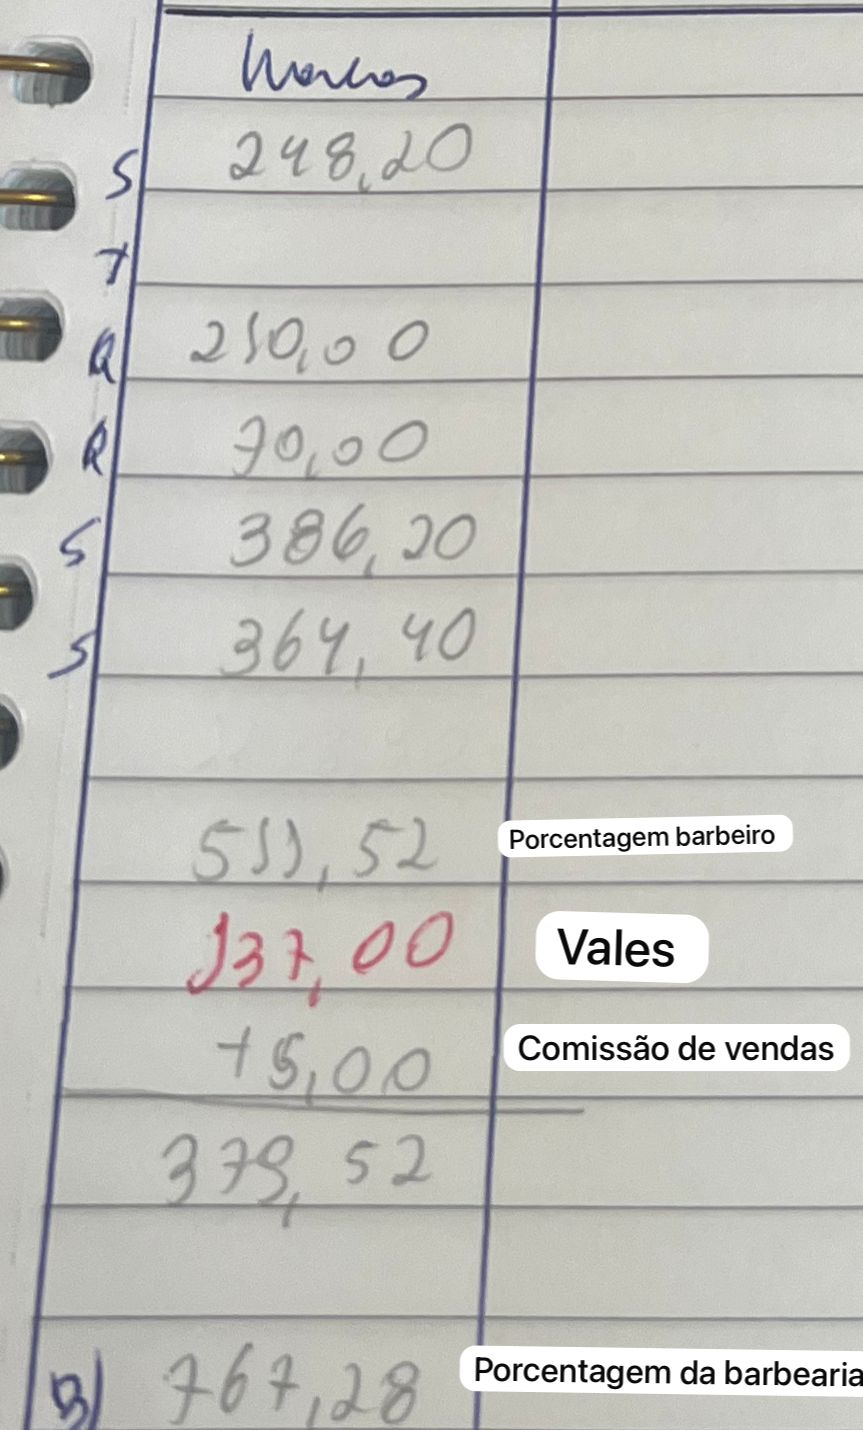 Marcos
S 248,20
T
Q 210,00
Q 70,00
S 386,20
S 364,40
511,52 Porcentagem barbeiro
137,00 Vales
+5,00 Comissão de vendas
379,52
B) 767,28 Porcentagem da barbearia